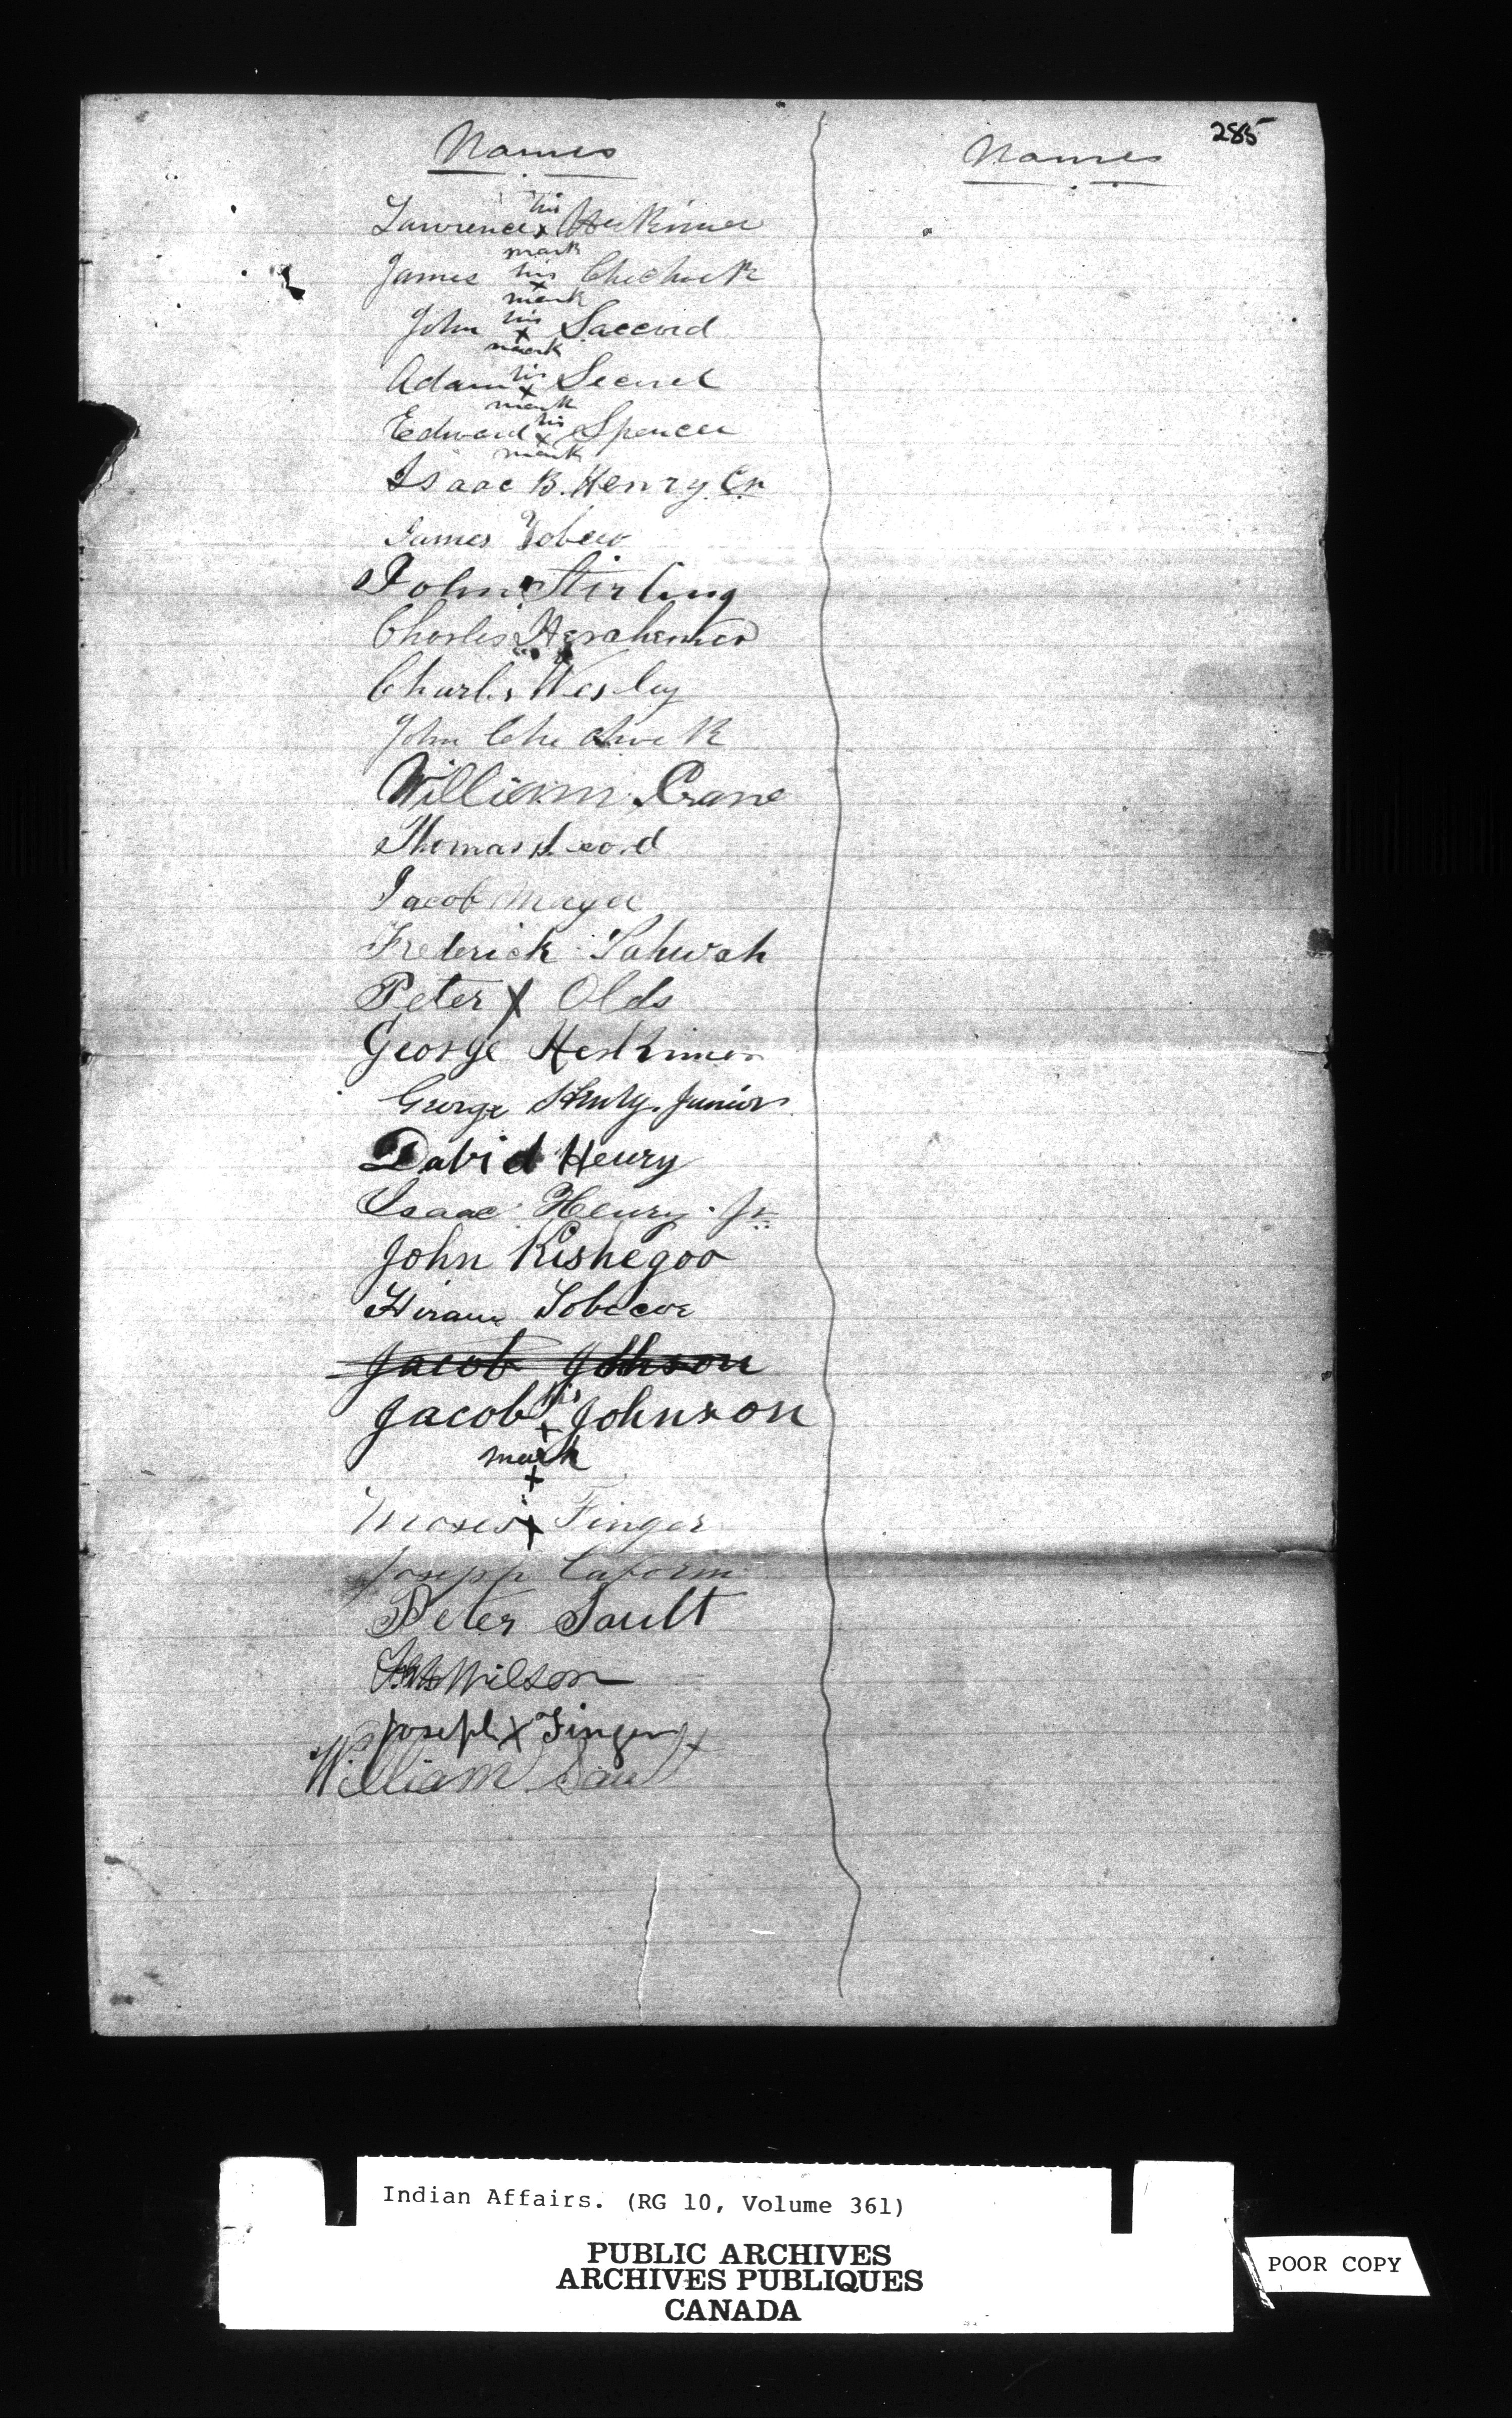 285
Names
Names
Lawrence his x mark Herkimer
James his x mark Chechock
John his x mark Saccord
Adam his x mark Secord
Edward his x mark Spencer
Isaac B. Henry Cr
James Tobeco
John Stirling
Charles Herchemer
Charles Wesley
John Chechock
William Crane
Thomas Secord
Jacob Magee
Frederick Sahwah
Peter x Olds
George Herkimer
George Henry Junior
David Henry
Isaac Henry Jr
John Kishegoo
Hiram Tobecoe
Jacob Johnson
Jacob his + mark Johnson
+
Moses x Finger
Joseph Laform
Peter Sault
Wilson
Joseph x Finger x
William Sault
Indian Affairs. (RG 10, Volume 361)
PUBLIC ARCHIVES
ARCHIVES PUBLIQUES
CANADA
POOR COPY